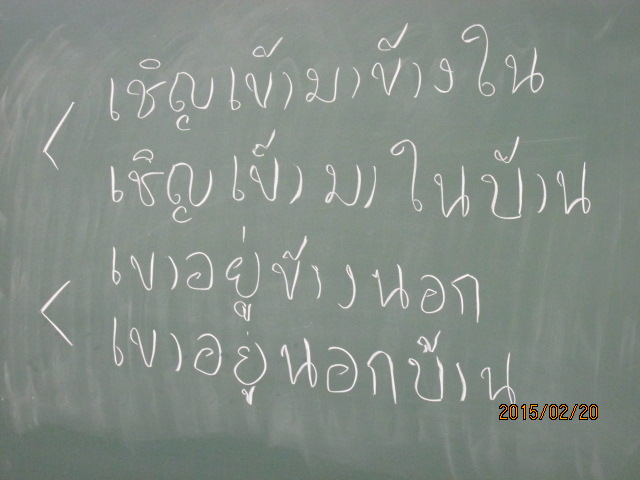 เชิญเข้ามาข้างใน
เชิญเข้ามาในบ้าน
เขาอยู่ข้างนอก
เขาอยู่นอกบ้าน
2015/02/20